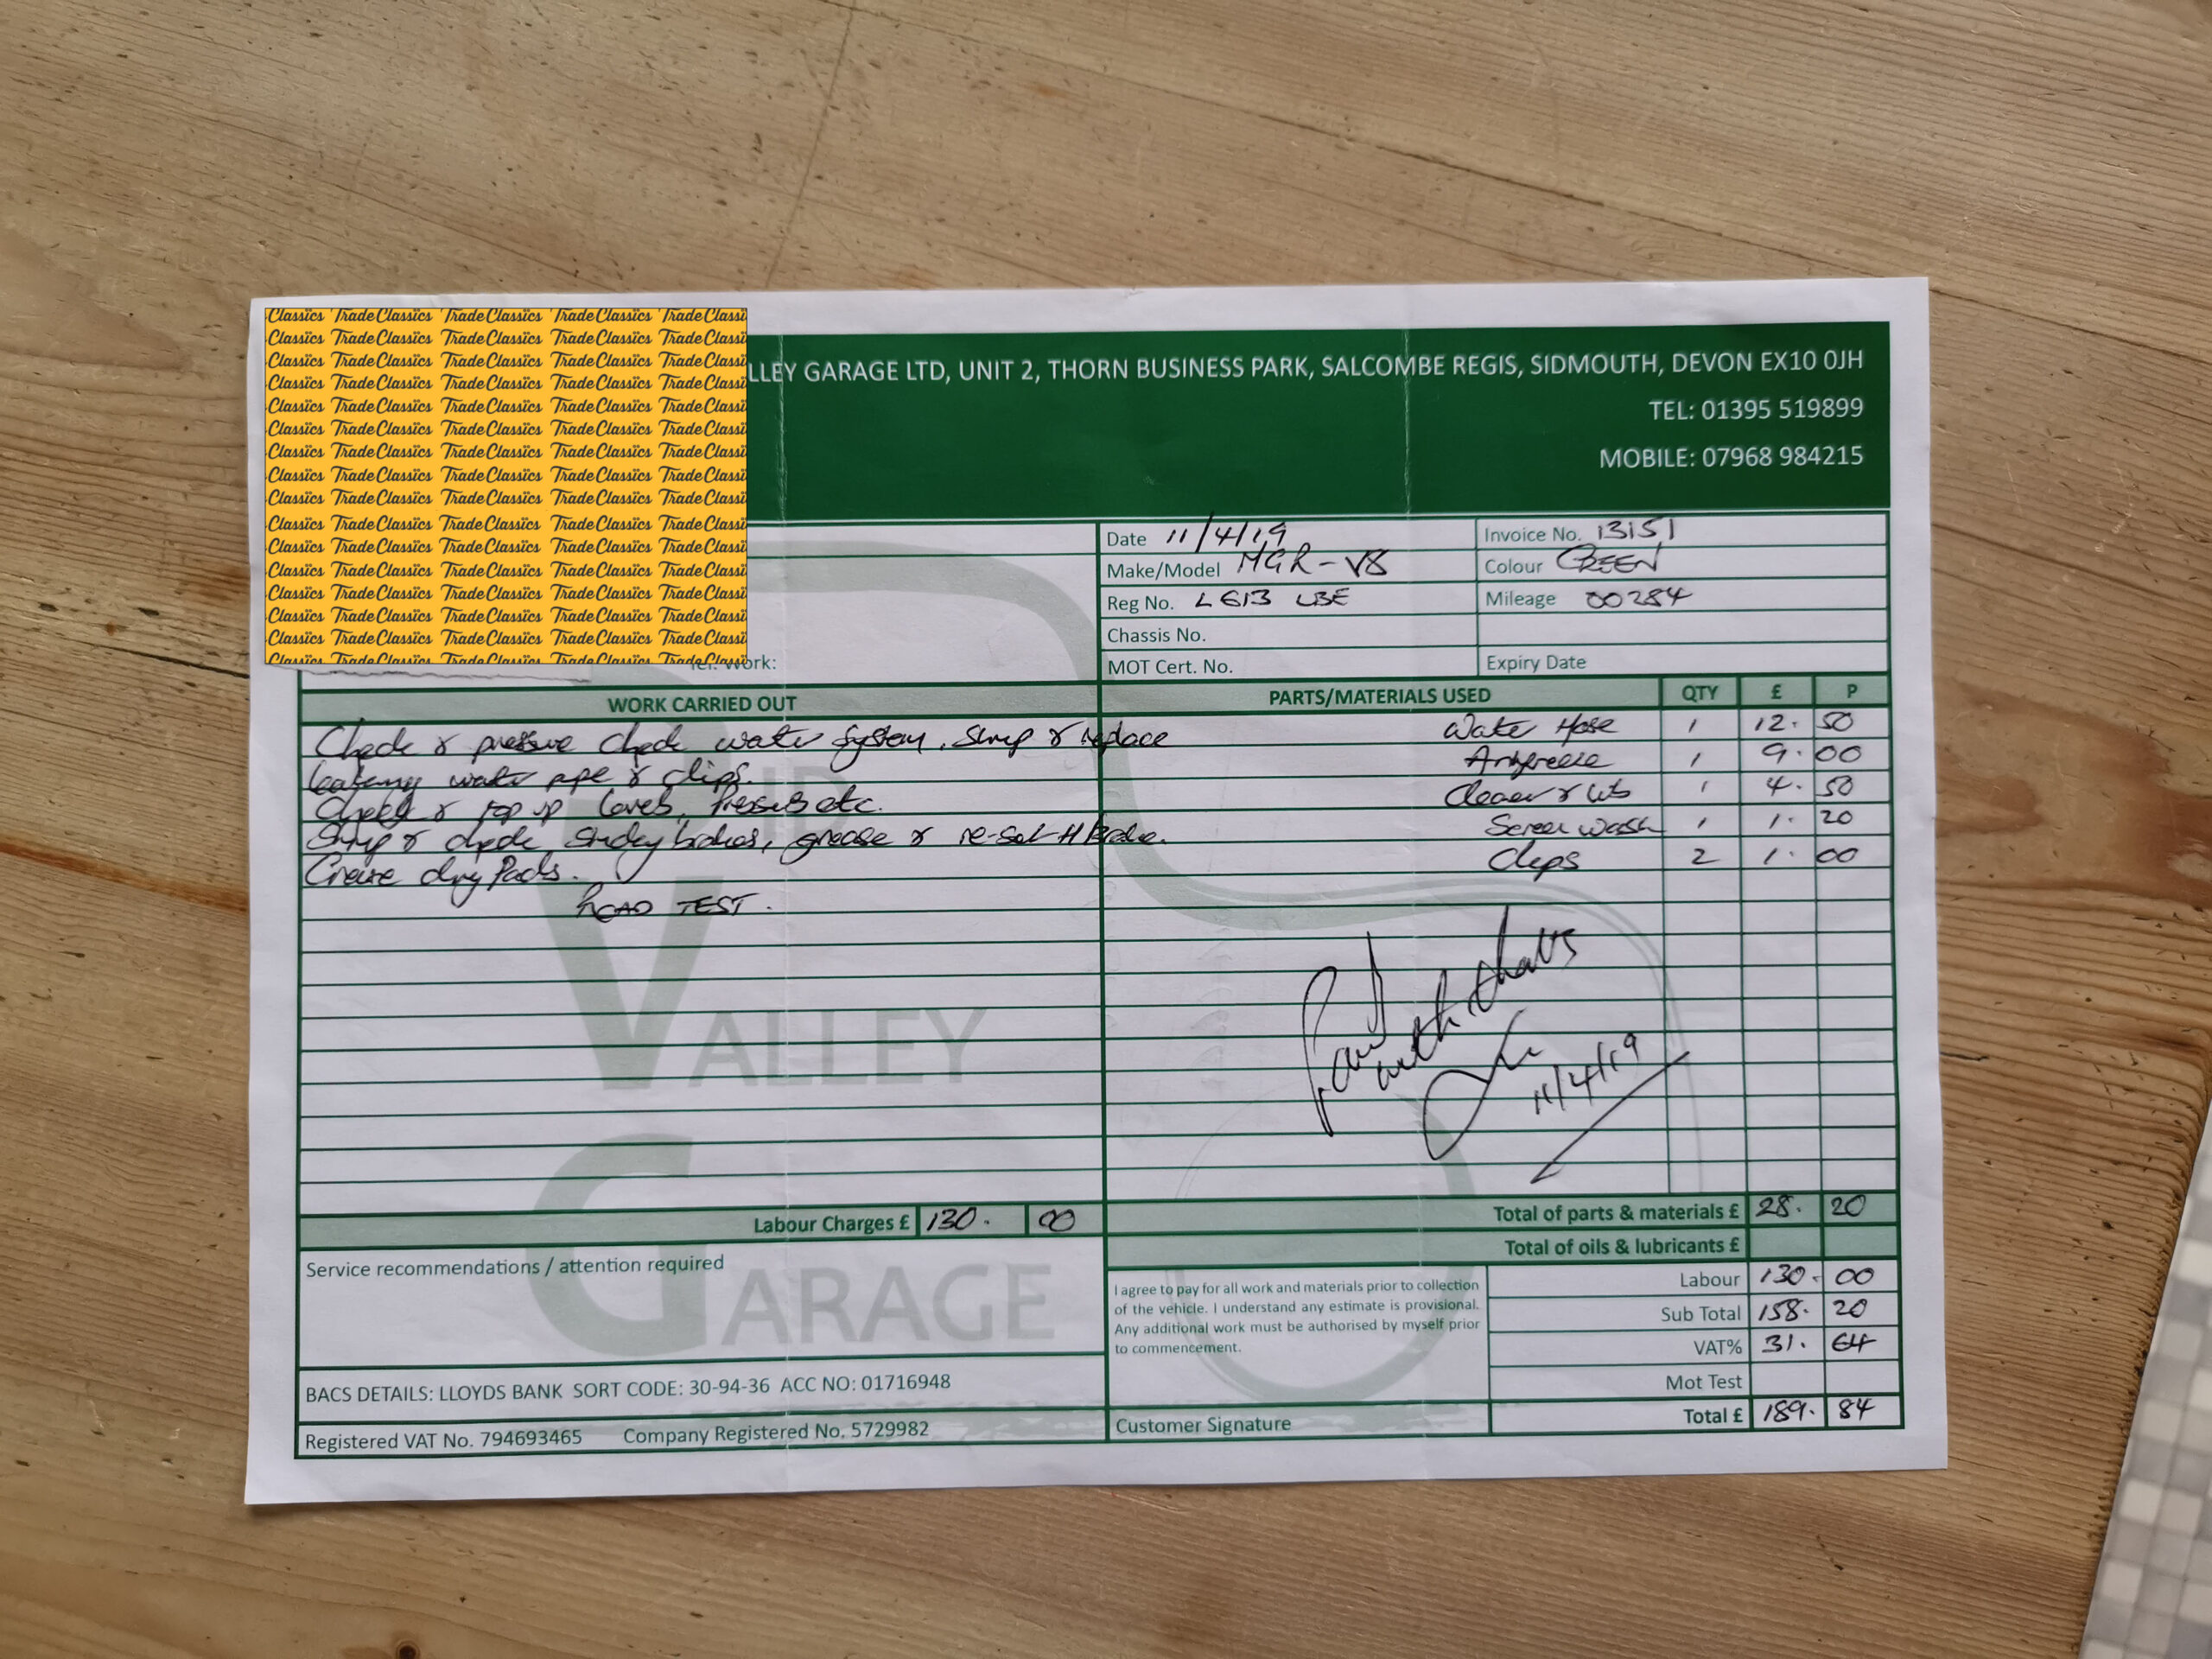 Classics TradeClassics TradeClassics TradeClassics TradeClassi
Classics TradeClassics TradeClassics TradeClassics TradeClassi
Classics TradeClassics TradeClassics TradeClassics TradeClassi
Classics TradeClassics TradeClassics TradeClassics TradeClassi
Classics TradeClassics TradeClassics TradeClassics TradeClassi
Classics TradeClassics TradeClassics TradeClassics TradeClassi
Classics TradeClassics TradeClassics TradeClassics TradeClassi
Classics TradeClassics TradeClassics TradeClassics TradeClassi
Classics TradeClassics TradeClassics TradeClassics TradeClassi
Classics TradeClassics TradeClassics TradeClassics TradeClassi
Classics TradeClassics TradeClassics TradeClassics TradeClassi
Classics TradeClassics TradeClassics TradeClassics TradeClassi
Classics TradeClassics TradeClassics TradeClassics TradeClassi
Classics TradeClassics TradeClassics TradeClassics TradeClassi
Classics TradeClassics TradeClassics TradeClassics TradeClassi
Classics TradeClassics TradeClassics TradeClassics TradeClassi
LLEY GARAGE LTD, UNIT 2, THORN BUSINESS PARK, SALCOMBE REGIS, SIDMOUTH, DEVON EX10 0JH
TEL: 01395 519899
MOBILE: 07968 984215
Date 11/4/19 Invoice No. 13151
Make/Model MGR-V8 Colour GREEN
Reg No. L613 LBE Mileage 00284
Chassis No.
Tel. Work: MOT Cert. No. Expiry Date
WORK CARRIED OUT PARTS/MATERIALS USED QTY £ P
Check & pressure check water system, strip & replace Water Hose 1 12. 50
leaking water pipe & clips. Antifreeze 1 9. 00
Check & top up levels, etc. Cleaner & 1 4. 50
Strip & check sticky brakes, grease & re-set H/Brake. Screen wash 1 1. 20
Grease dry Pads. Clips 2 1. 00
ROAD TEST.
Paid
with thanks
11/4/19
VALLEY
GARAGE
Labour Charges £ 130. 00 Total of parts & materials £ 28. 20
Total of oils & lubricants £
Service recommendations / attention required
I agree to pay for all work and materials prior to collection
of the vehicle. I understand any estimate is provisional.
Any additional work must be authorised by myself prior
to commencement.
Labour 130. 00
Sub Total 158. 20
VAT% 31. 64
Mot Test
BACS DETAILS: LLOYDS BANK SORT CODE: 30-94-36 ACC NO: 01716948
Customer Signature Total £ 189. 84
Registered VAT No. 794693465 Company Registered No. 5729982